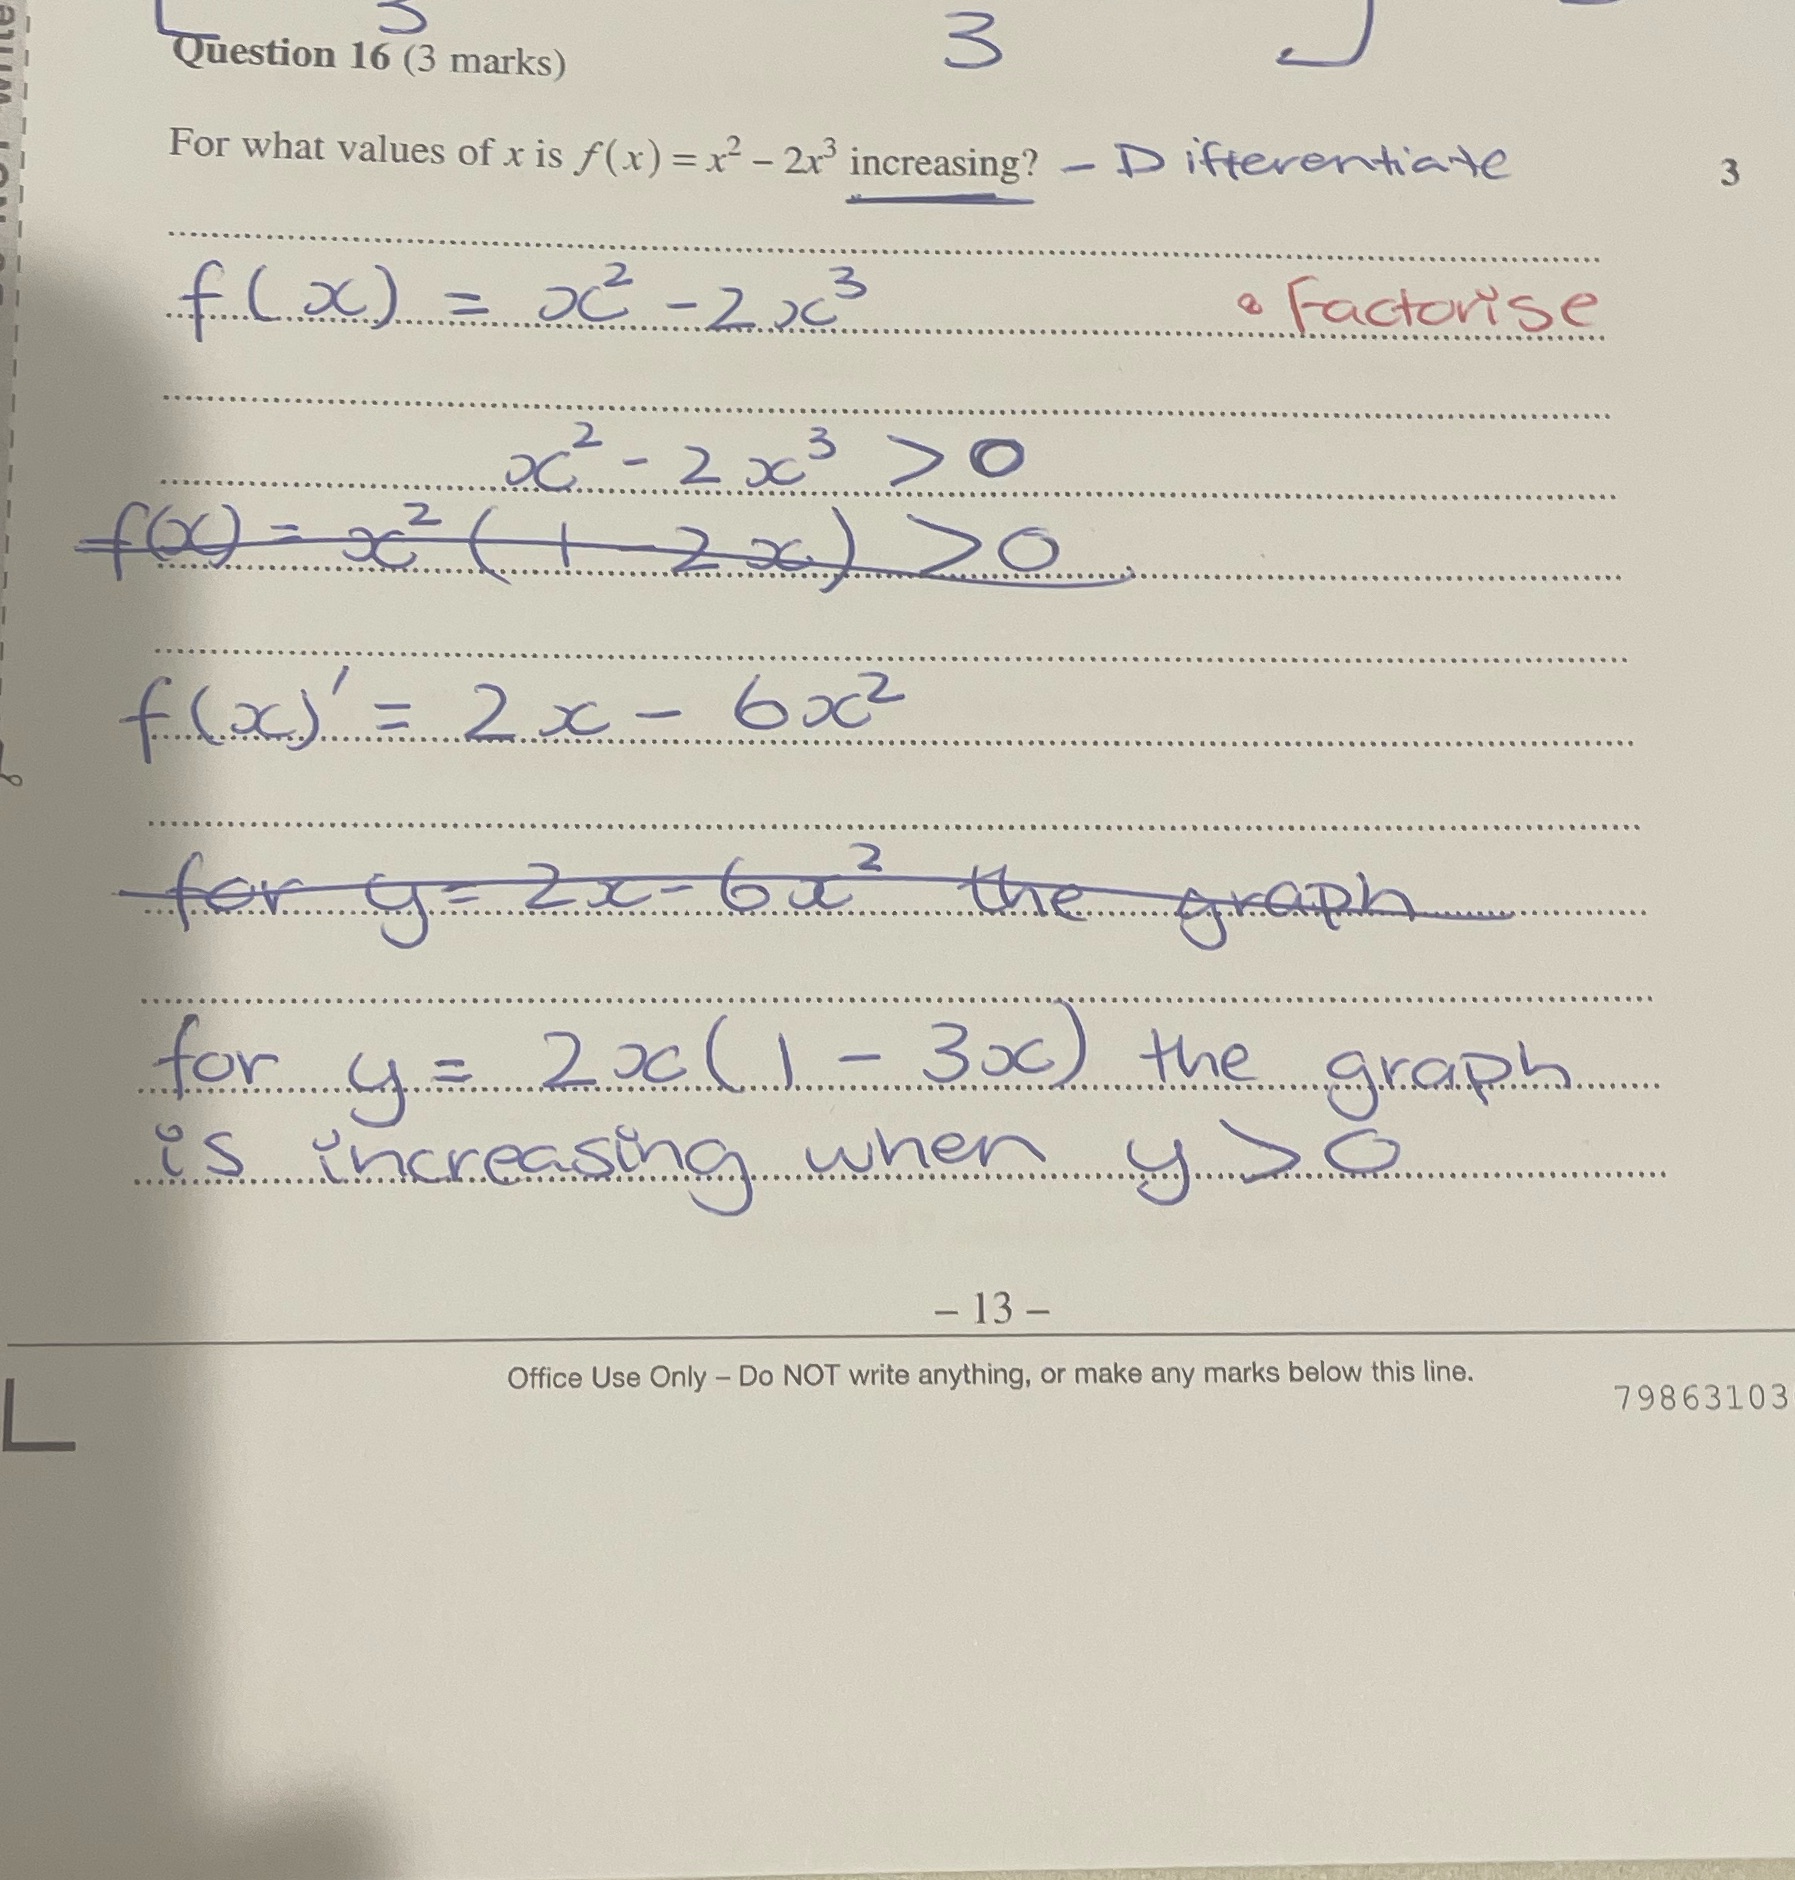 3 3
Question 16 (3 marks)
For what values of x is f(x) = x² – 2x³ increasing? – Differentiate 3
f(x) = x² - 2x³ • Factorise
x² - 2x³ > 0
f(x) = x² (1 - 2x) > 0
f(x)' = 2x - 6x²
for y = 2x - 6x² the graph
for y = 2x(1 - 3x) the graph
is increasing when y > 0
– 13 –
Office Use Only – Do NOT write anything, or make any marks below this line.
79863103